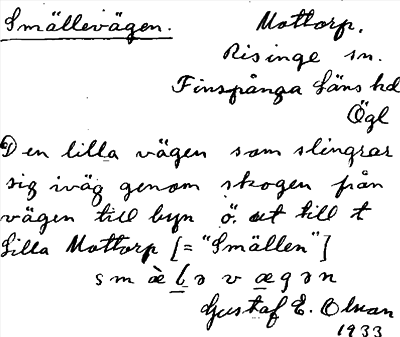 Smällevägen.
Mottorp.
Risinge sn.
Finspånga läns hd
Ögl
Den lilla vägen som slingrar
sig iväg genom skogen från
vägen till byn ö. ut till t
Lilla Mottorp [= "Smällen"]
smæ̀lə vægən
Gustaf E. Olsson
1933